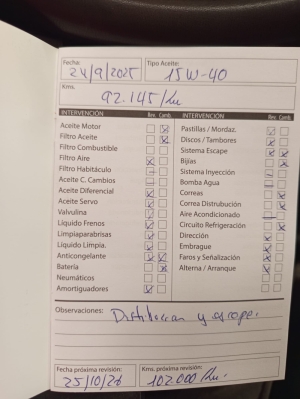 Fecha: 24/9/2025
Tipo Aceite: 15W-40
Kms. 92.145/km
INTERVENCIÓN Rev. Camb.
Aceite Motor
Filtro Aceite
Filtro Combustible
Filtro Aire
Filtro Habitáculo
Aceite C. Cambios
Aceite Diferencial
Aceite Servo
Valvulina
Líquido Frenos
Limpiaparabrisas
Líquido Limpia.
Anticongelante
Batería
Neumáticos
Amortiguadores
INTERVENCIÓN Rev. Camb.
Pastillas / Mordaz.
Discos / Tambores
Sistema Escape
Bijias
Sistema Inyección
Bomba Agua
Correas
Correa Distrubución
Aire Acondicionado
Circuito Refrigeración
Dirección
Embrague
Faros y Señalización
Alterna / Arranque
Observaciones: Distribucion y escape.
Fecha próxima revisión: 25/10/26
Kms. próxima revisión: 102.000/km.